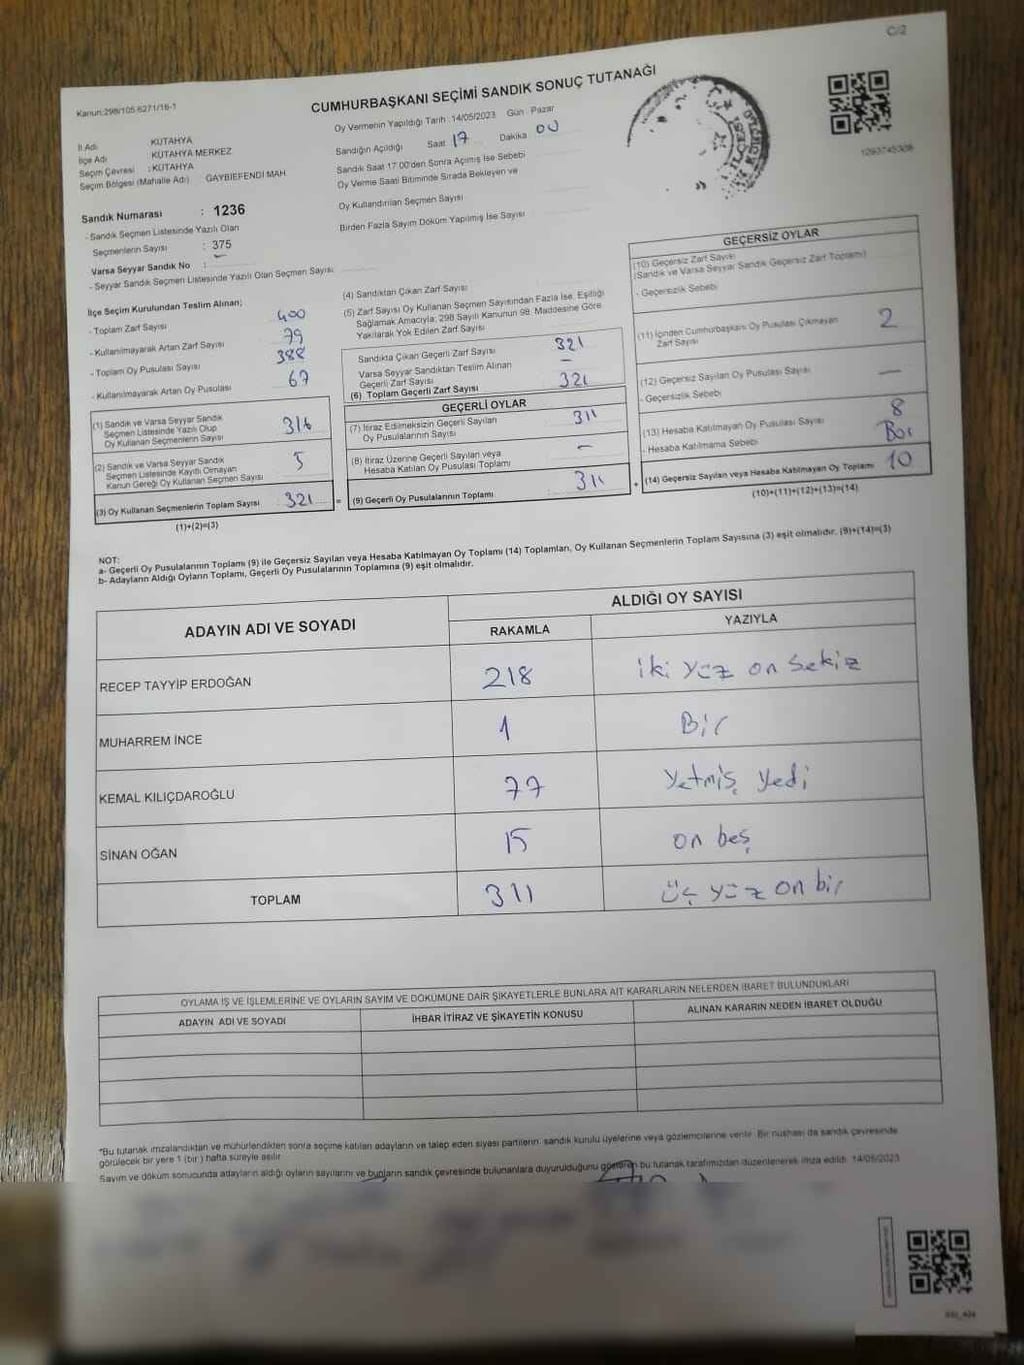 C/2
Kanun:298/105 6271/16-1
CUMHURBAŞKANI SEÇİMİ SANDIK SONUÇ TUTANAĞI
Oy Vermenin Yapıldığı Tarih : 14/05/2023 Gün : Pazar
İl Adı KÜTAHYA
İlçe Adı : KÜTAHYA MERKEZ
Seçim Çevresi : KÜTAHYA
Seçim Bölgesi (Mahalle Adı) GAYBİEFENDİ MAH
Sandığın Açıldığı Saat 17 Dakika 00
Sandık Saat 17:00'den Sonra Açılmış İse Sebebi
Oy Verme Saati Bitiminde Sırada Bekleyen ve
Oy Kullandırılan Seçmen Sayısı
Birden Fazla Sayım Döküm Yapılmış İse Sayısı
Sandık Numarası : 1236
- Sandık Seçmen Listesinde Yazılı Olan
Seçmenlerin Sayısı : 375
Varsa Seyyar Sandık No : —
- Seyyar Sandık Seçmen Listesinde Yazılı Olan Seçmen Sayısı
İlçe Seçim Kurulundan Teslim Alınan;
- Toplam Zarf Sayısı 400
- Kullanılmayarak Artan Zarf Sayısı 79
- Toplam Oy Pusulası Sayısı 388
- Kullanılmayarak Artan Oy Pusulası 67
(1) Sandık ve Varsa Seyyar Sandık
Seçmen Listesinde Yazılı Olup
Oy Kullanan Seçmenlerin Sayısı 316
(2) Sandık ve Varsa Seyyar Sandık
Seçmen Listesinde Kayıtlı Olmayan
Kanun Gereği Oy Kullanan Seçmen Sayısı 5
(3) Oy Kullanan Seçmenlerin Toplam Sayısı 321
(1)+(2)=(3)
(4) Sandıktan Çıkan Zarf Sayısı
(5) Zarf Sayısı Oy Kullanan Seçmen Sayısından Fazla İse, Eşitliği
Sağlamak Amacıyla, 298 Sayılı Kanunun 98. Maddesine Göre
Yakılarak Yok Edilen Zarf Sayısı
Sandıkta Çıkan Geçerli Zarf Sayısı 321
Varsa Seyyar Sandıktan Teslim Alınan
Geçerli Zarf Sayısı —
(6) Toplam Geçerli Zarf Sayısı 321
GEÇERLİ OYLAR
(7) İtiraz Edilmeksizin Geçerli Sayılan
Oy Pusulalarının Sayısı 311
(8) İtiraz Üzerine Geçerli Sayılan veya
Hesaba Katılan Oy Pusulası Toplamı —
= (9) Geçerli Oy Pusulalarının Toplamı : 311 +
GEÇERSİZ OYLAR
(10) Geçersiz Zarf Sayısı
(Sandık ve Varsa Seyyar Sandık Geçersiz Zarf Toplamı)
- Geçersizlik Sebebi
(11) İçinden Cumhurbaşkanı Oy Pusulası Çıkmayan
Zarf Sayısı 2
(12) Geçersiz Sayılan Oy Pusulası Sayısı —
- Geçersizlik Sebebi
(13) Hesaba Katılmayan Oy Pusulası Sayısı 8
- Hesaba Katılmama Sebebi Boş
(14) Geçersiz Sayılan veya Hesaba Katılmayan Oy Toplamı 10
(10)+(11)+(12)+(13)=(14)
NOT:
a- Geçerli Oy Pusulalarının Toplamı (9) ile Geçersiz Sayılan veya Hesaba Katılmayan Oy Toplamı (14) Toplamları, Oy Kullanan Seçmenlerin Toplam Sayısına (3) eşit olmalıdır. (9)+(14)=(3)
b- Adayların Aldığı Oyların Toplamı, Geçerli Oy Pusulalarının Toplamına (9) eşit olmalıdır.
ADAYIN ADI VE SOYADI ALDIĞI OY SAYISI
RAKAMLA YAZIYLA
RECEP TAYYİP ERDOĞAN 218 iki yüz on sekiz
MUHARREM İNCE 1 Bir
KEMAL KILIÇDAROĞLU 77 Yetmiş Yedi
SİNAN OĞAN 15 on beş
TOPLAM 311 üç yüz on bir
OYLAMA İŞ VE İŞLEMLERİNE VE OYLARIN SAYIM VE DÖKÜMÜNE DAİR ŞİKAYETLERLE BUNLARA AİT KARARLARIN NELERDEN İBARET BULUNDUKLARI
ADAYIN ADI VE SOYADI İHBAR İTİRAZ VE ŞİKAYETİN KONUSU ALINAN KARARIN NEDEN İBARET OLDUĞU
*Bu tutanak imzalandıktan ve mühürlendikten sonra seçime katılan adayların ve talep eden siyasi partilerin, sandık kurulu üyelerine veya gözlemcilerine verilir. Bir nüshası da sandık çevresinde
görülecek bir yere 1 (bir) hafta süreyle asılır
Sayım ve döküm sonucunda adayların aldığı oyların sayılarını ve bunların sandık çevresinde bulunanlara duyurulduğunu gösteren bu tutanak tarafımızdan düzenlenerek imza edildi. 14/05/2023